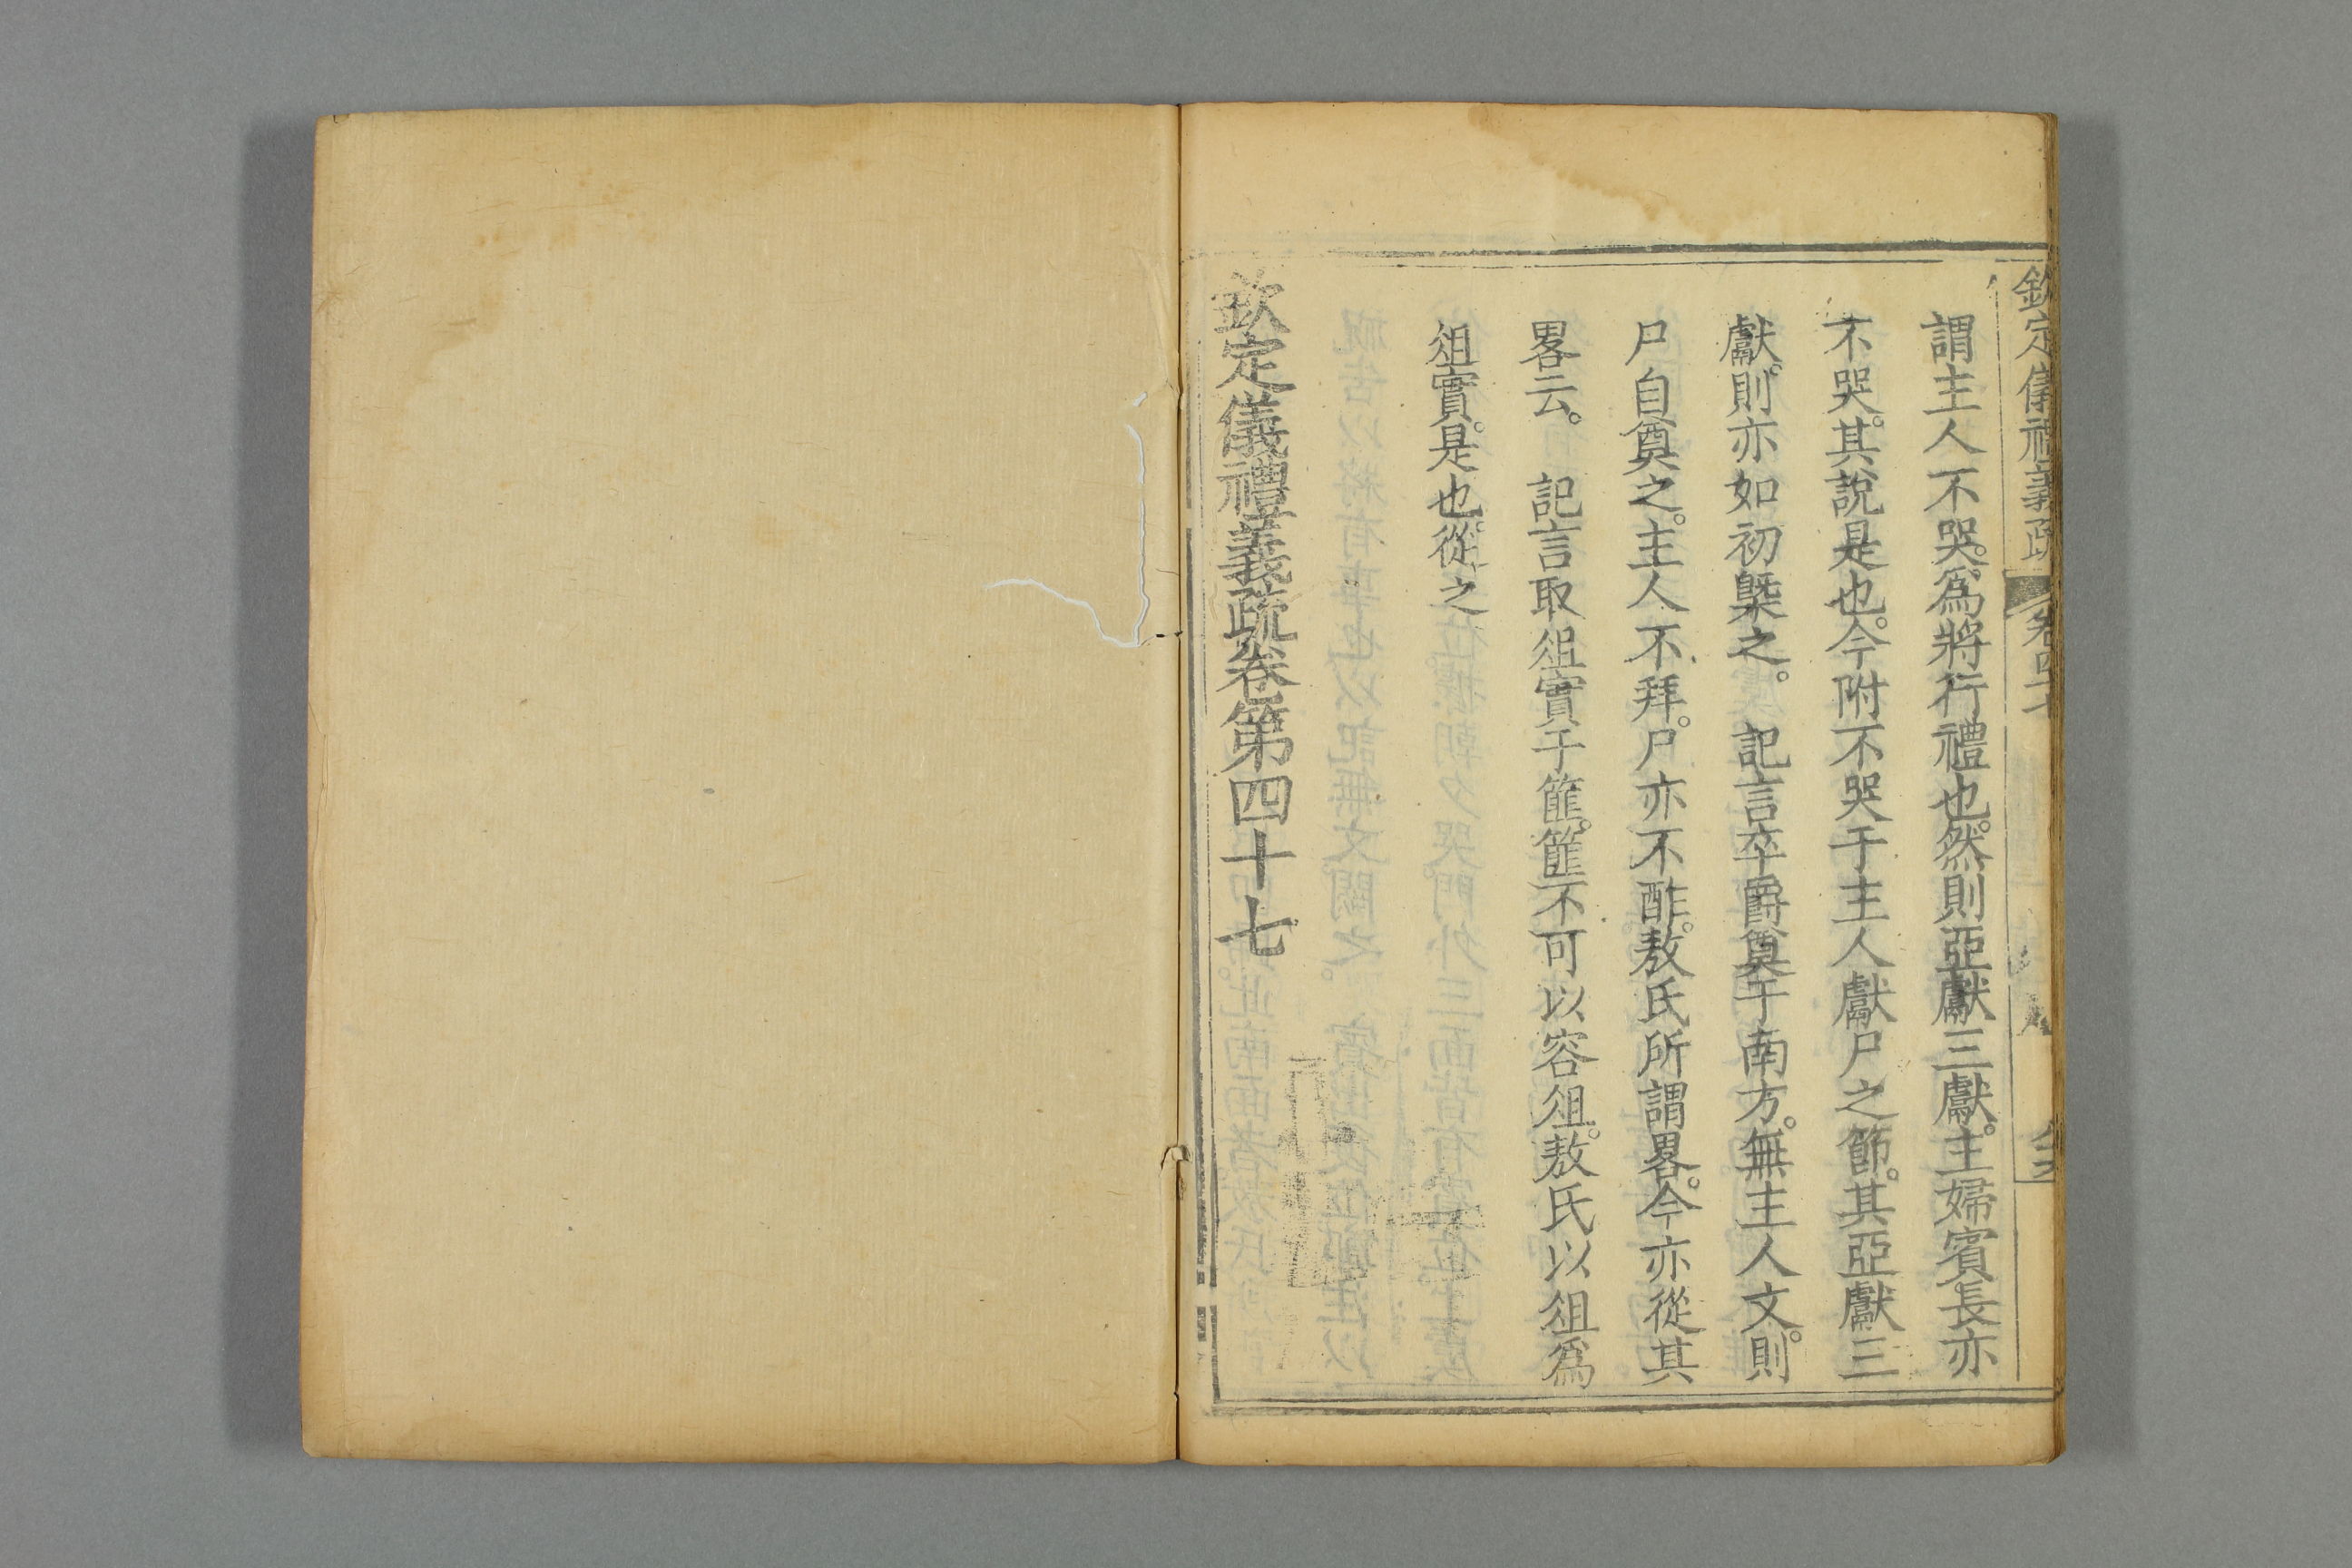 欽定儀禮義疏 卷四十七
謂主人不哭。爲將行禮也。然則亞獻三獻。主婦賓長亦
不哭。其說是也。今附不哭于主人獻尸之節。其亞獻三
獻。則亦如初槩之。 記言卒爵奠于南方。無主人文。則
尸自奠之。主人不拜。尸亦不酢。敖氏所謂畧。今亦從其
畧云。 記言取俎實于篚。篚不可以容俎。敖氏以俎爲
俎實。是也。從之
欽定儀禮義疏卷第四十七